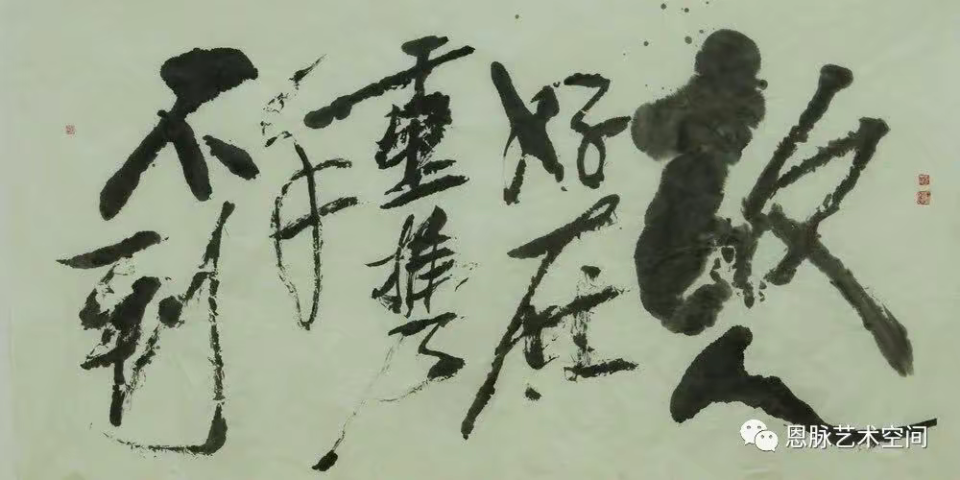 故人
好在
重携
手
不到
恩脉艺术空间